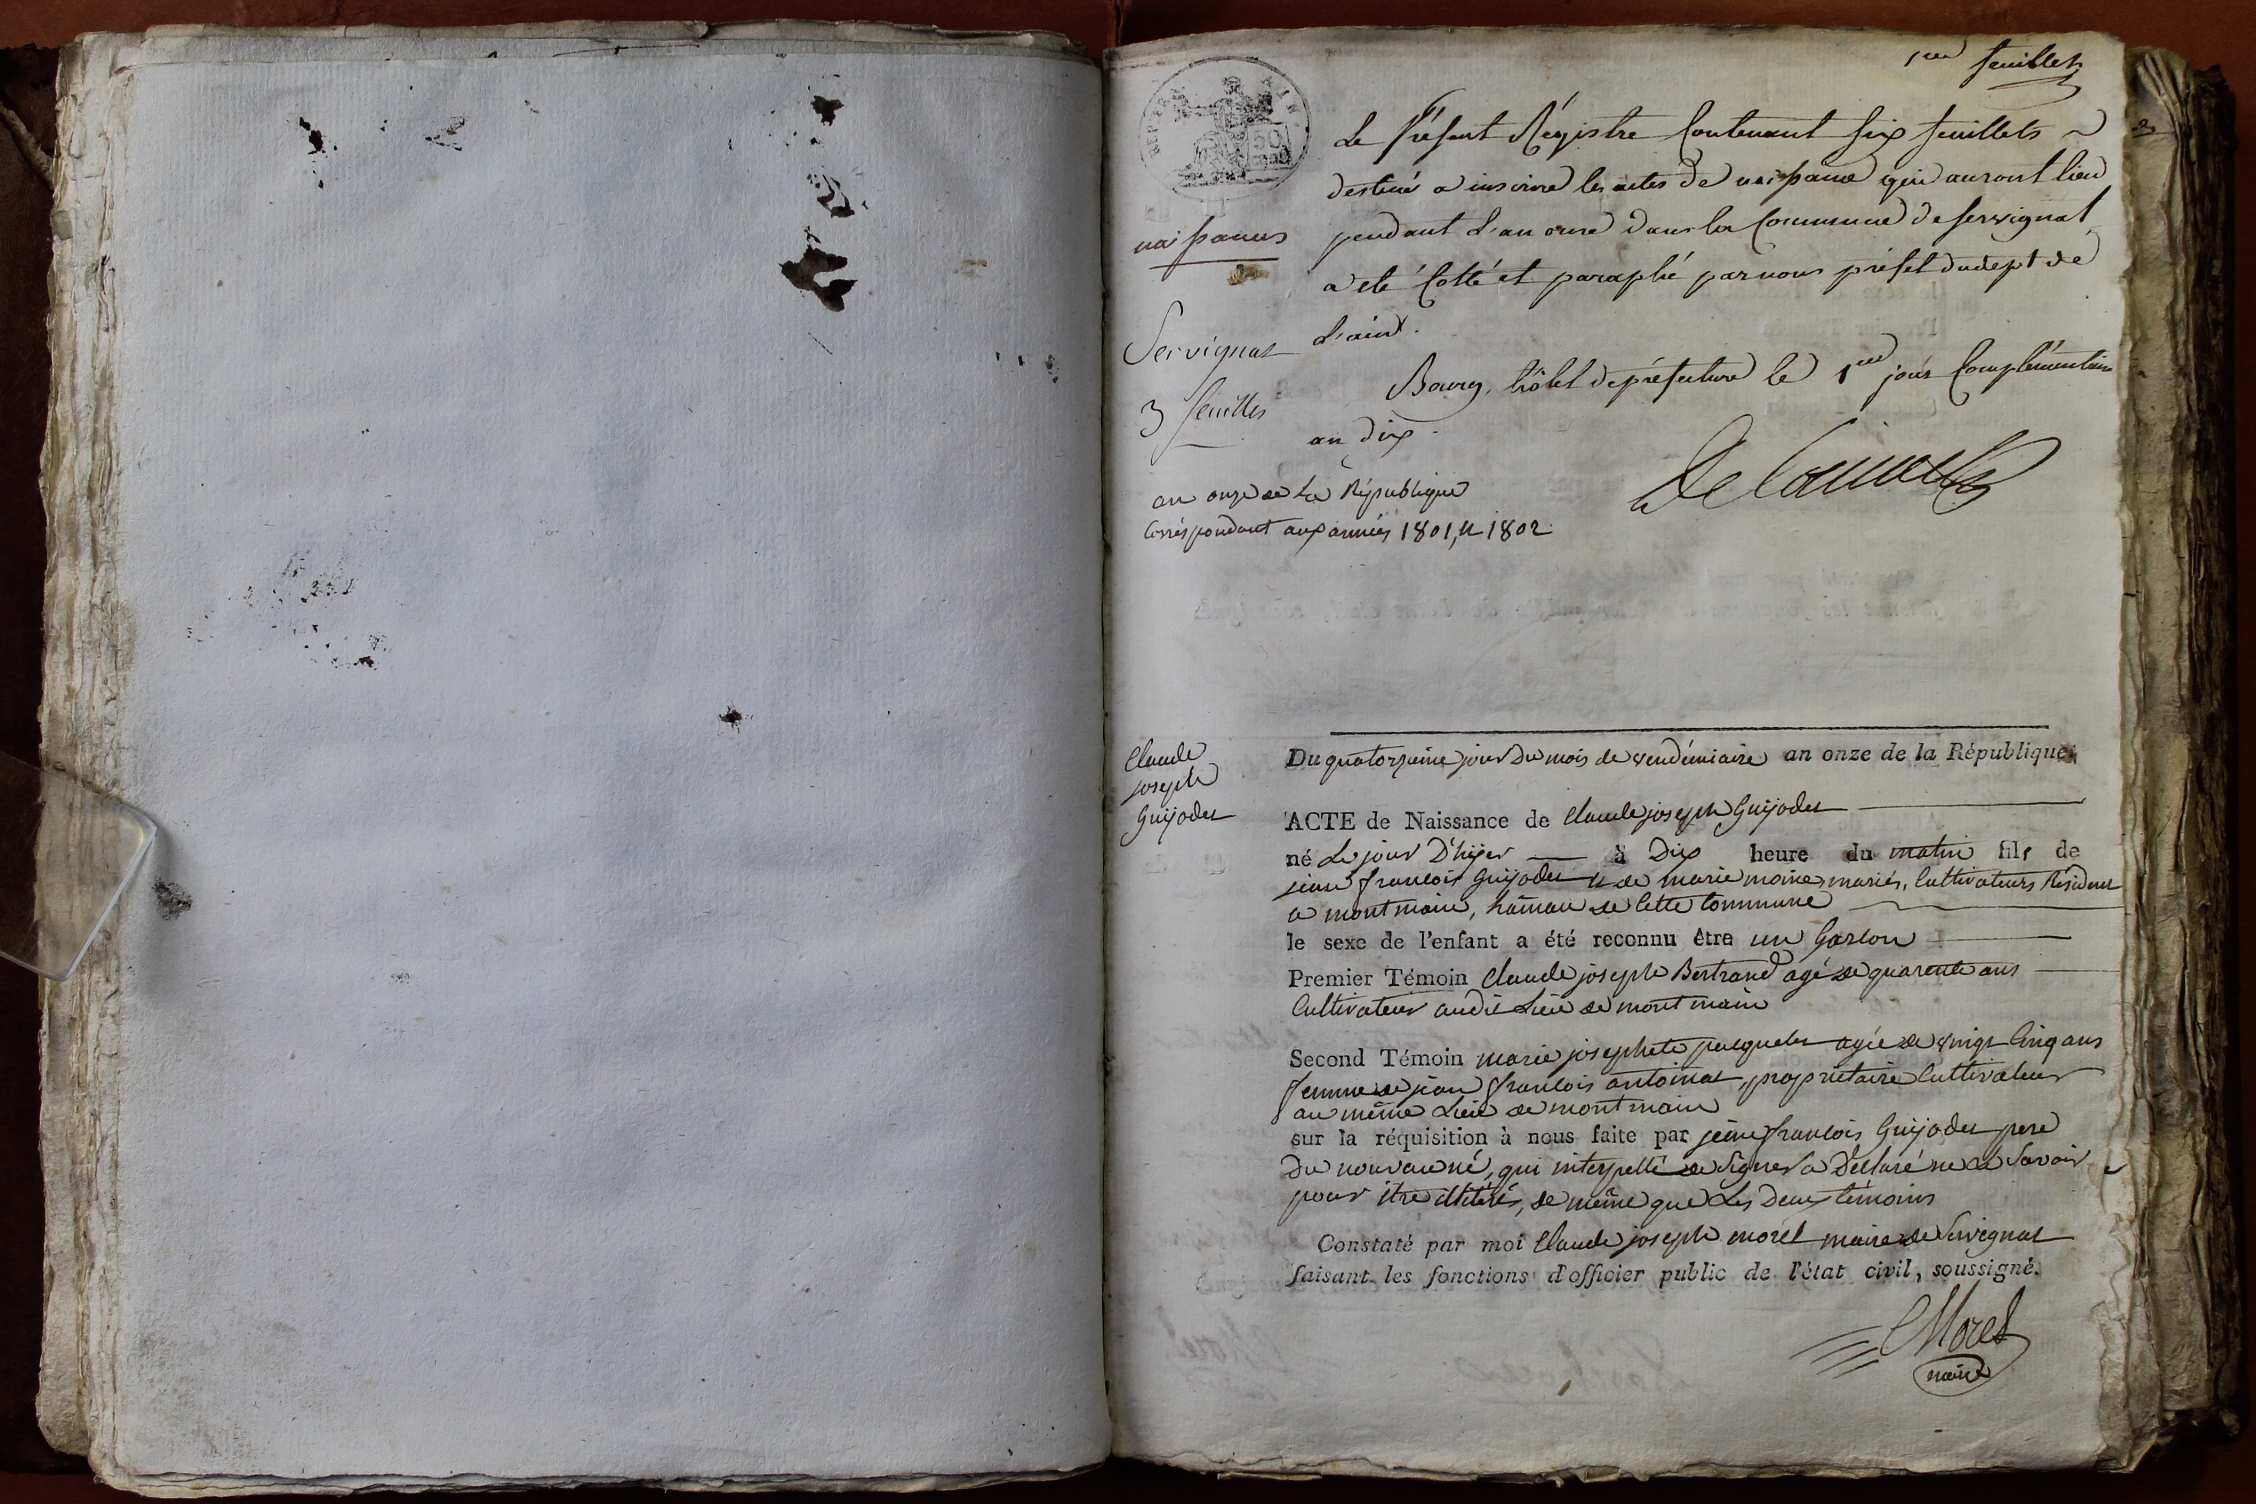 1er feuillet
REP. FRA
AIN.
Le Présent Régistre Contenant six feuillets
destiné a inscrire les actes de naissance qui auront lieu
pendant l'an onze dans la Commune de Servignat
a été Cotté et paraphé par nous préfet du dept de
L'ain.
Bourg, hôtel de préfecture le 1er jour Complémentaire
an dix.
naissances
Servignat
3 feuilles
an onze de La République
Corréspondant aux années 1801, et 1802
Claude
joseph
Guijodet
Du quatorzième jour Du mois de vendémiaire an onze de la République
ACTE de Naissance de Claude joseph Guijodet
né Le jour D'hijer à Dix heure du matin fils de
jean francois Guijodet et de marie moine, mariés, Cultivateurs Résidents
a montmain, hâmau de Cette Commune
le sexe de l'enfant a été reconnu être un Garcon
Premier Témoin Claude joseph Bertrand agé de quarente ans
Cultivateur audit Lieu de montmain
Second Témoin marie josephete pacquelet agée de vingt Cinq ans
femme de jean francois antoinat, propriétaire Cultivateur
au même Lieu de montmain
sur la réquisition à nous faite par jean francois Guijodet pere
Du nouveau né, qui interpellé de Signer a Déclaré ne Le Savoir
pour être illiterés, de même que Les Deux témoins
Constaté par moi Claude joseph morel maire de Servignat
faisant les fonctions d'officier public de l'état civil, soussigné.
Morel
maire